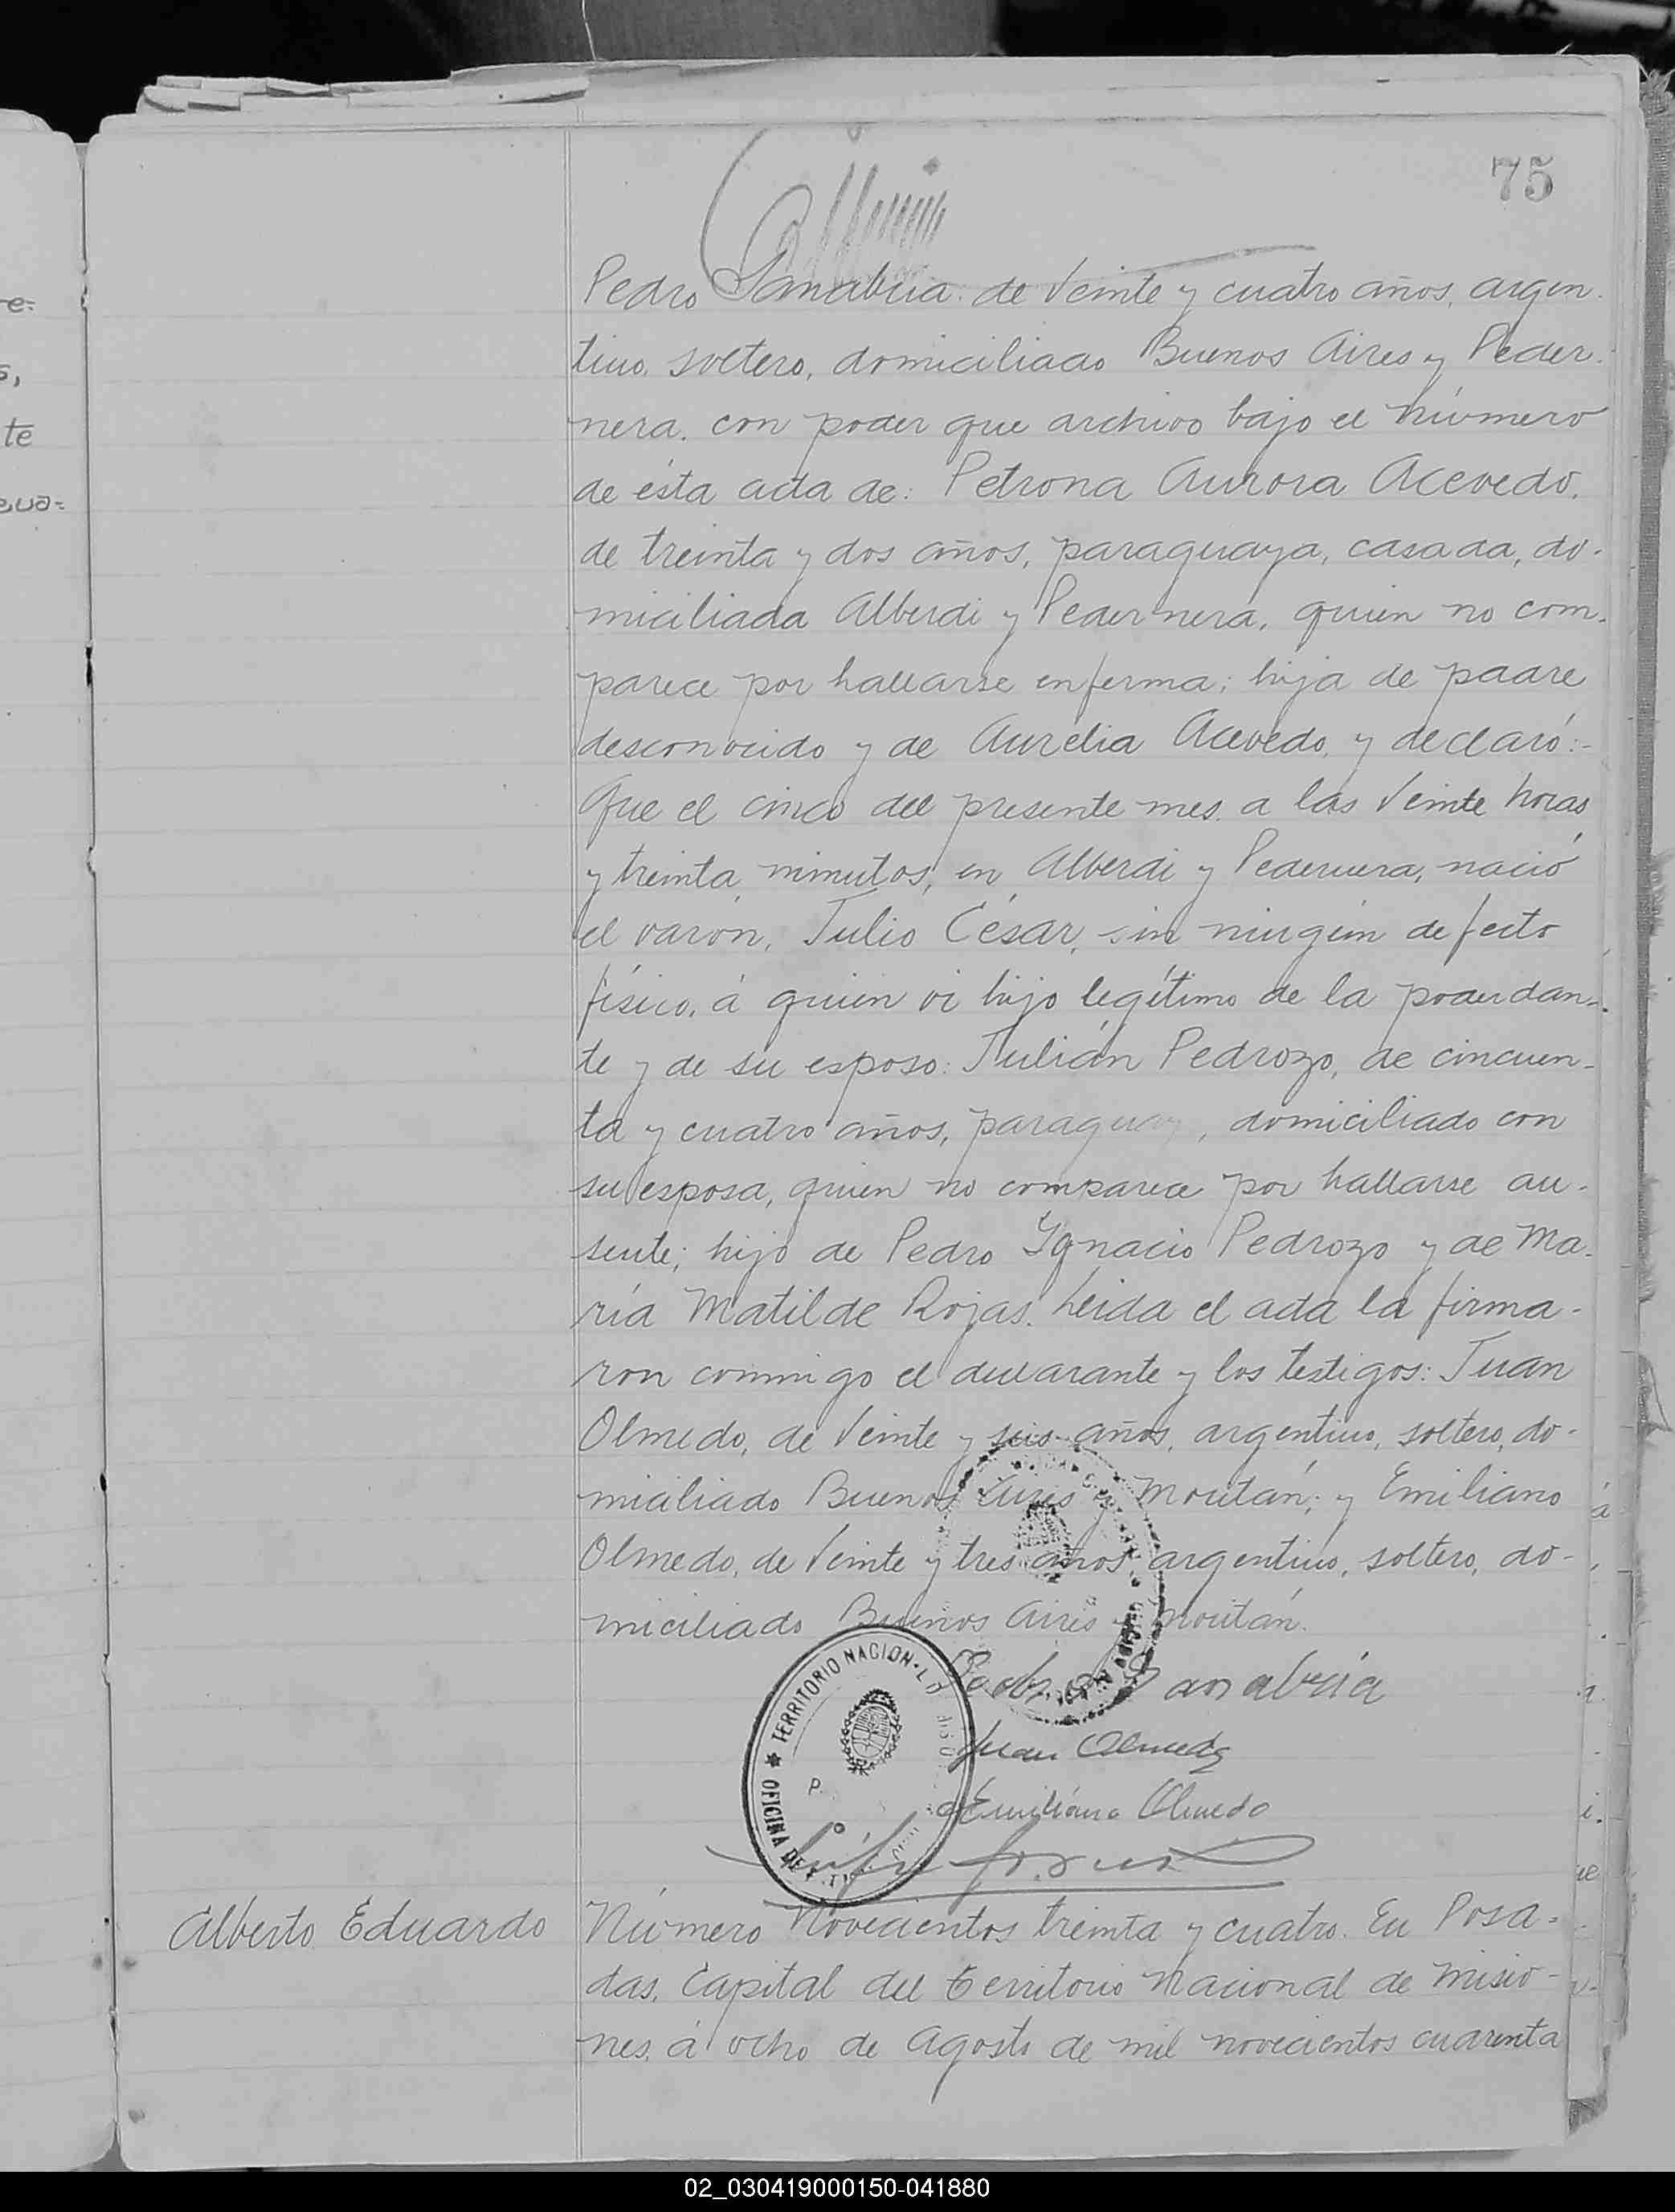 75
Pedro Sanabria. de Veinte y cuatro años, argen-
tino, soltero, domiciliado Buenos Aires y Peder-
nera. con poder que archivo bajo el número
de ésta acta de: Petrona Aurora Acevedo,
de treinta y dos años, paraguaya, casada, do-
miciliada Alberdi y Pedernera, quien no com-
parece por hallarse enferma; hija de padre
desconocido y de Aurelia Acevedo, y declaró:-
Que el cinco del presente mes, a las Veinte horas
y treinta minutos, en Alberdi y Pedernera, nació
el varón, Julio César, sin ningún defecto
físico, á quien vi hijo legítimo de la poderdan-
te y de su esposo: Julián Pedrozo, de cincuen-
ta y cuatro años, paraguay, domiciliado con
su esposa, quien no comparece por hallarse au-
sente; hijo de Pedro Ygnacio Pedrozo y de Ma-
ría Matilde Rojas. Leida el acta la firma-
ron conmigo el declarante y los testigos: Juan
Olmedo, de Veinte y seis años, argentino, soltero, do-
miciliado Buenos Aires y Moritán; y Emiliano
Olmedo, de Veinte y tres años, argentino, soltero, do-
miciliado Buenos Aires y Moritán.
Pedro Sanabria
Juan Olmedo
Emiliano Olmedo
TERRITORIO NACIONAL D
OFICINA DE
Alberto Eduardo
Número Novecientos treinta y cuatro. En Posa-
das, Capital del Territorio Nacional de Misio-
nes, á ocho de Agosto de mil novecientos cuarenta
e-
s,
te
02_030419000150-041880